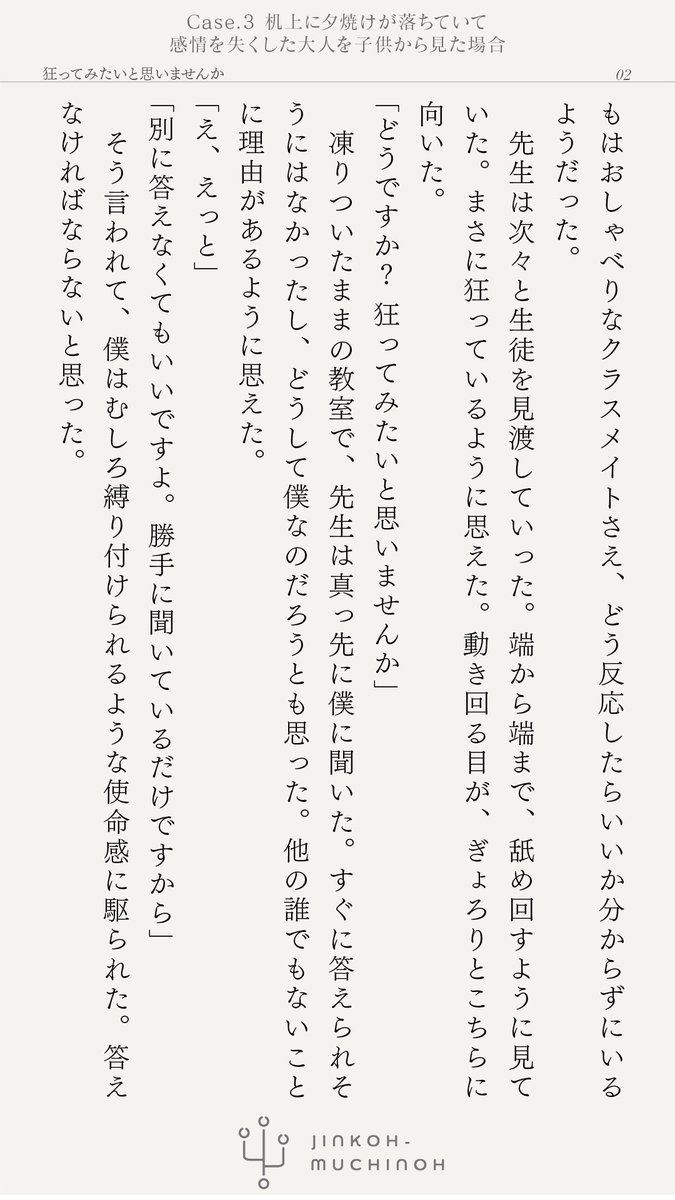 Case.3 机上に夕焼けが落ちていて
感情を失くした大人を子供から見た場合
狂ってみたいと思いませんか
02
もはおしゃべりなクラスメイトさえ、どう反応したらいいか分からずにいる
ようだった。
　先生は次々と生徒を見渡していった。端から端まで、舐め回すように見て
いた。まさに狂っているように思えた。動き回る目が、ぎょろりとこちらに
向いた。
「どうですか？　狂ってみたいと思いませんか」
　凍りついたままの教室で、先生は真っ先に僕に聞いた。すぐに答えられそ
うにはなかったし、どうして僕なのだろうとも思った。他の誰でもないこと
に理由があるように思えた。
「え、えっと」
「別に答えなくてもいいですよ。勝手に聞いているだけですから」
　そう言われて、僕はむしろ縛り付けられるような使命感に駆られた。答え
なければならないと思った。
JINKOH-
MUCHINOH